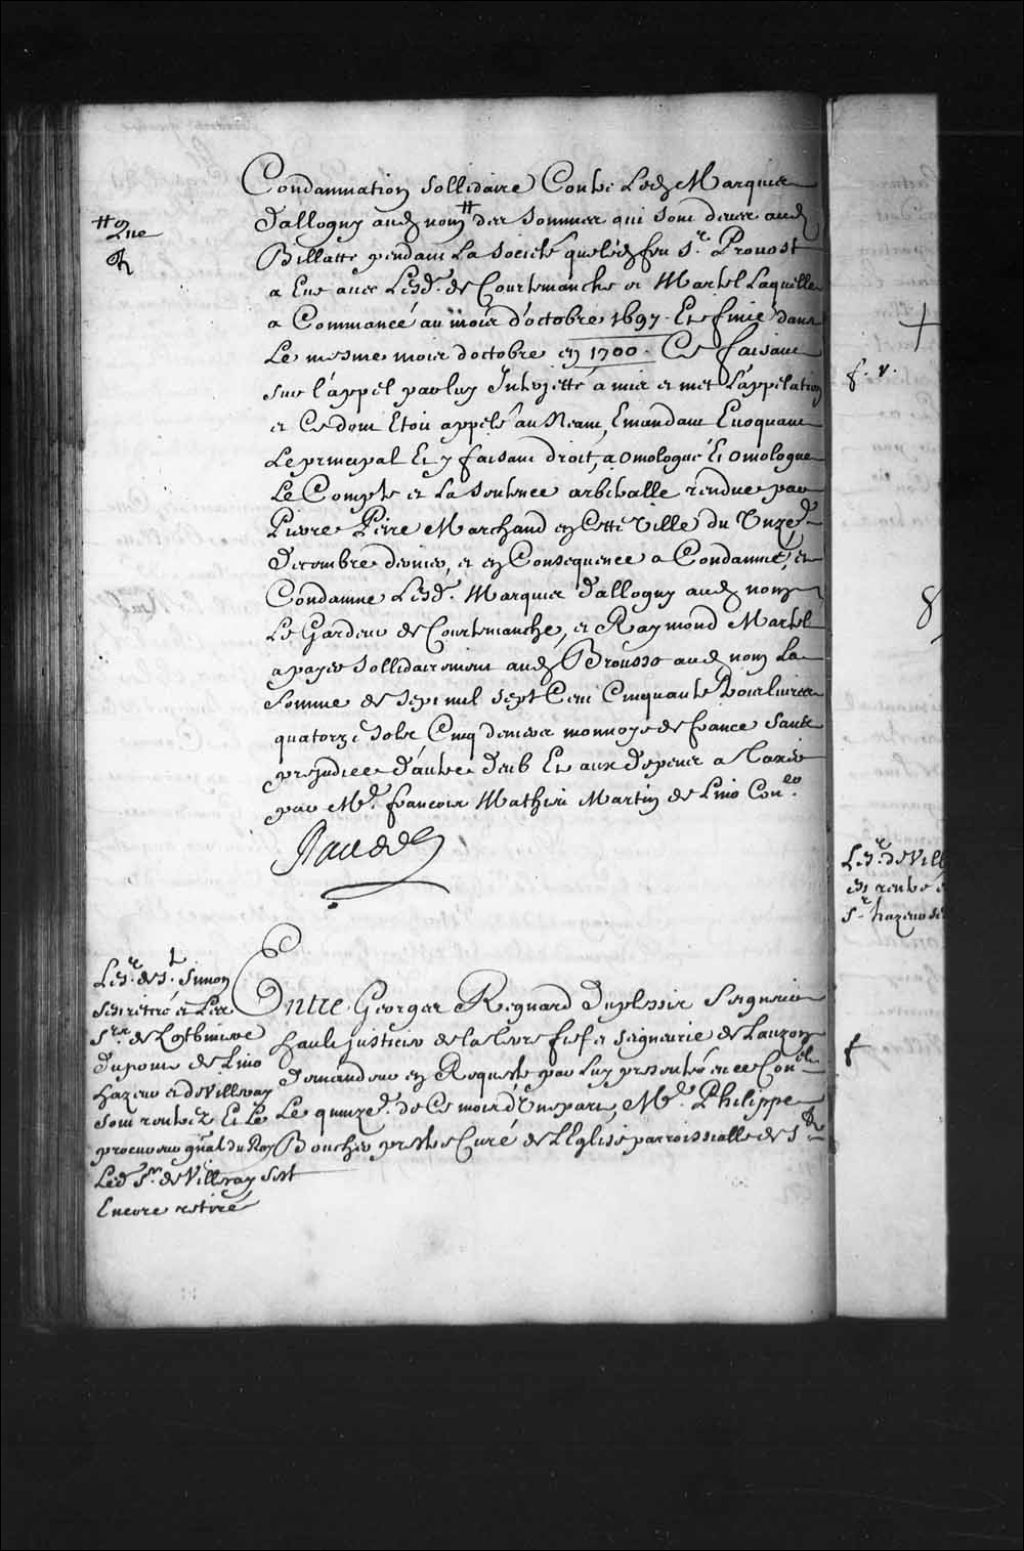 Condamnation sollidaire Contre Led. Marquis
d'allogny aud. nom # des sommes qui sont deues aud.
# Que
Billatte pendant La societé que led. feu Sr. Prouost
a Eue auec Lesd. de Courtemanche et Martel Laquelle
a Commancé au mois d'octobre 1697. Et finie dans
Le mesme mois doctobre en 1700. Ce faisant
sur l'appel par luy Interjetté a mis et met L'appelation
et Ce dont Etoit appelé au Neant, Emandant Euoquant
Le principal Et y faisant droit, a omologué Et omologue
Le Compte et La sentence arbitralle rendue par
Pierre Peire Marchand en Cette Ville du Unze
decembre dernier, et en Consequence a Condamné, et
Condamne Lesd. Marquis d'allogny aud. nom
Le Gardeur de Courtemanche, et Raymond Martel
a payer sollidairement aud. Brousse aud. nom La
somme de sept mil sept Cent Cinquante Trois liures
quatorze sols Cinq deniers monnoye de france sans
prejudice d'autre deub Et aux depens a Taxer
par Me. francois Mathieu Martin de Lino Coner.
Les. de St. Simon
sest retiré et Les
Srs. de Lotbiniere
Dupont de Lino
hazeur et de Villeray
sont rentrez Et Le
procureur gnal du Roy
Led. Sr. de Villeray sest
Encore retiré
Entre Georges Regnard Duplessis Seigneur
haut justicier de la terre fief et seigneurie de Lauzon
demandeur en Requeste par Luy presentée en ce Conel.
Le quinze. de Ce mois d'Une part, Me. Philippe
Boucher prestre Curé de L'Eglise parroissialle de St.
f. v.
8
Le Sr. de Vill
est rentré
Sr. hazeur